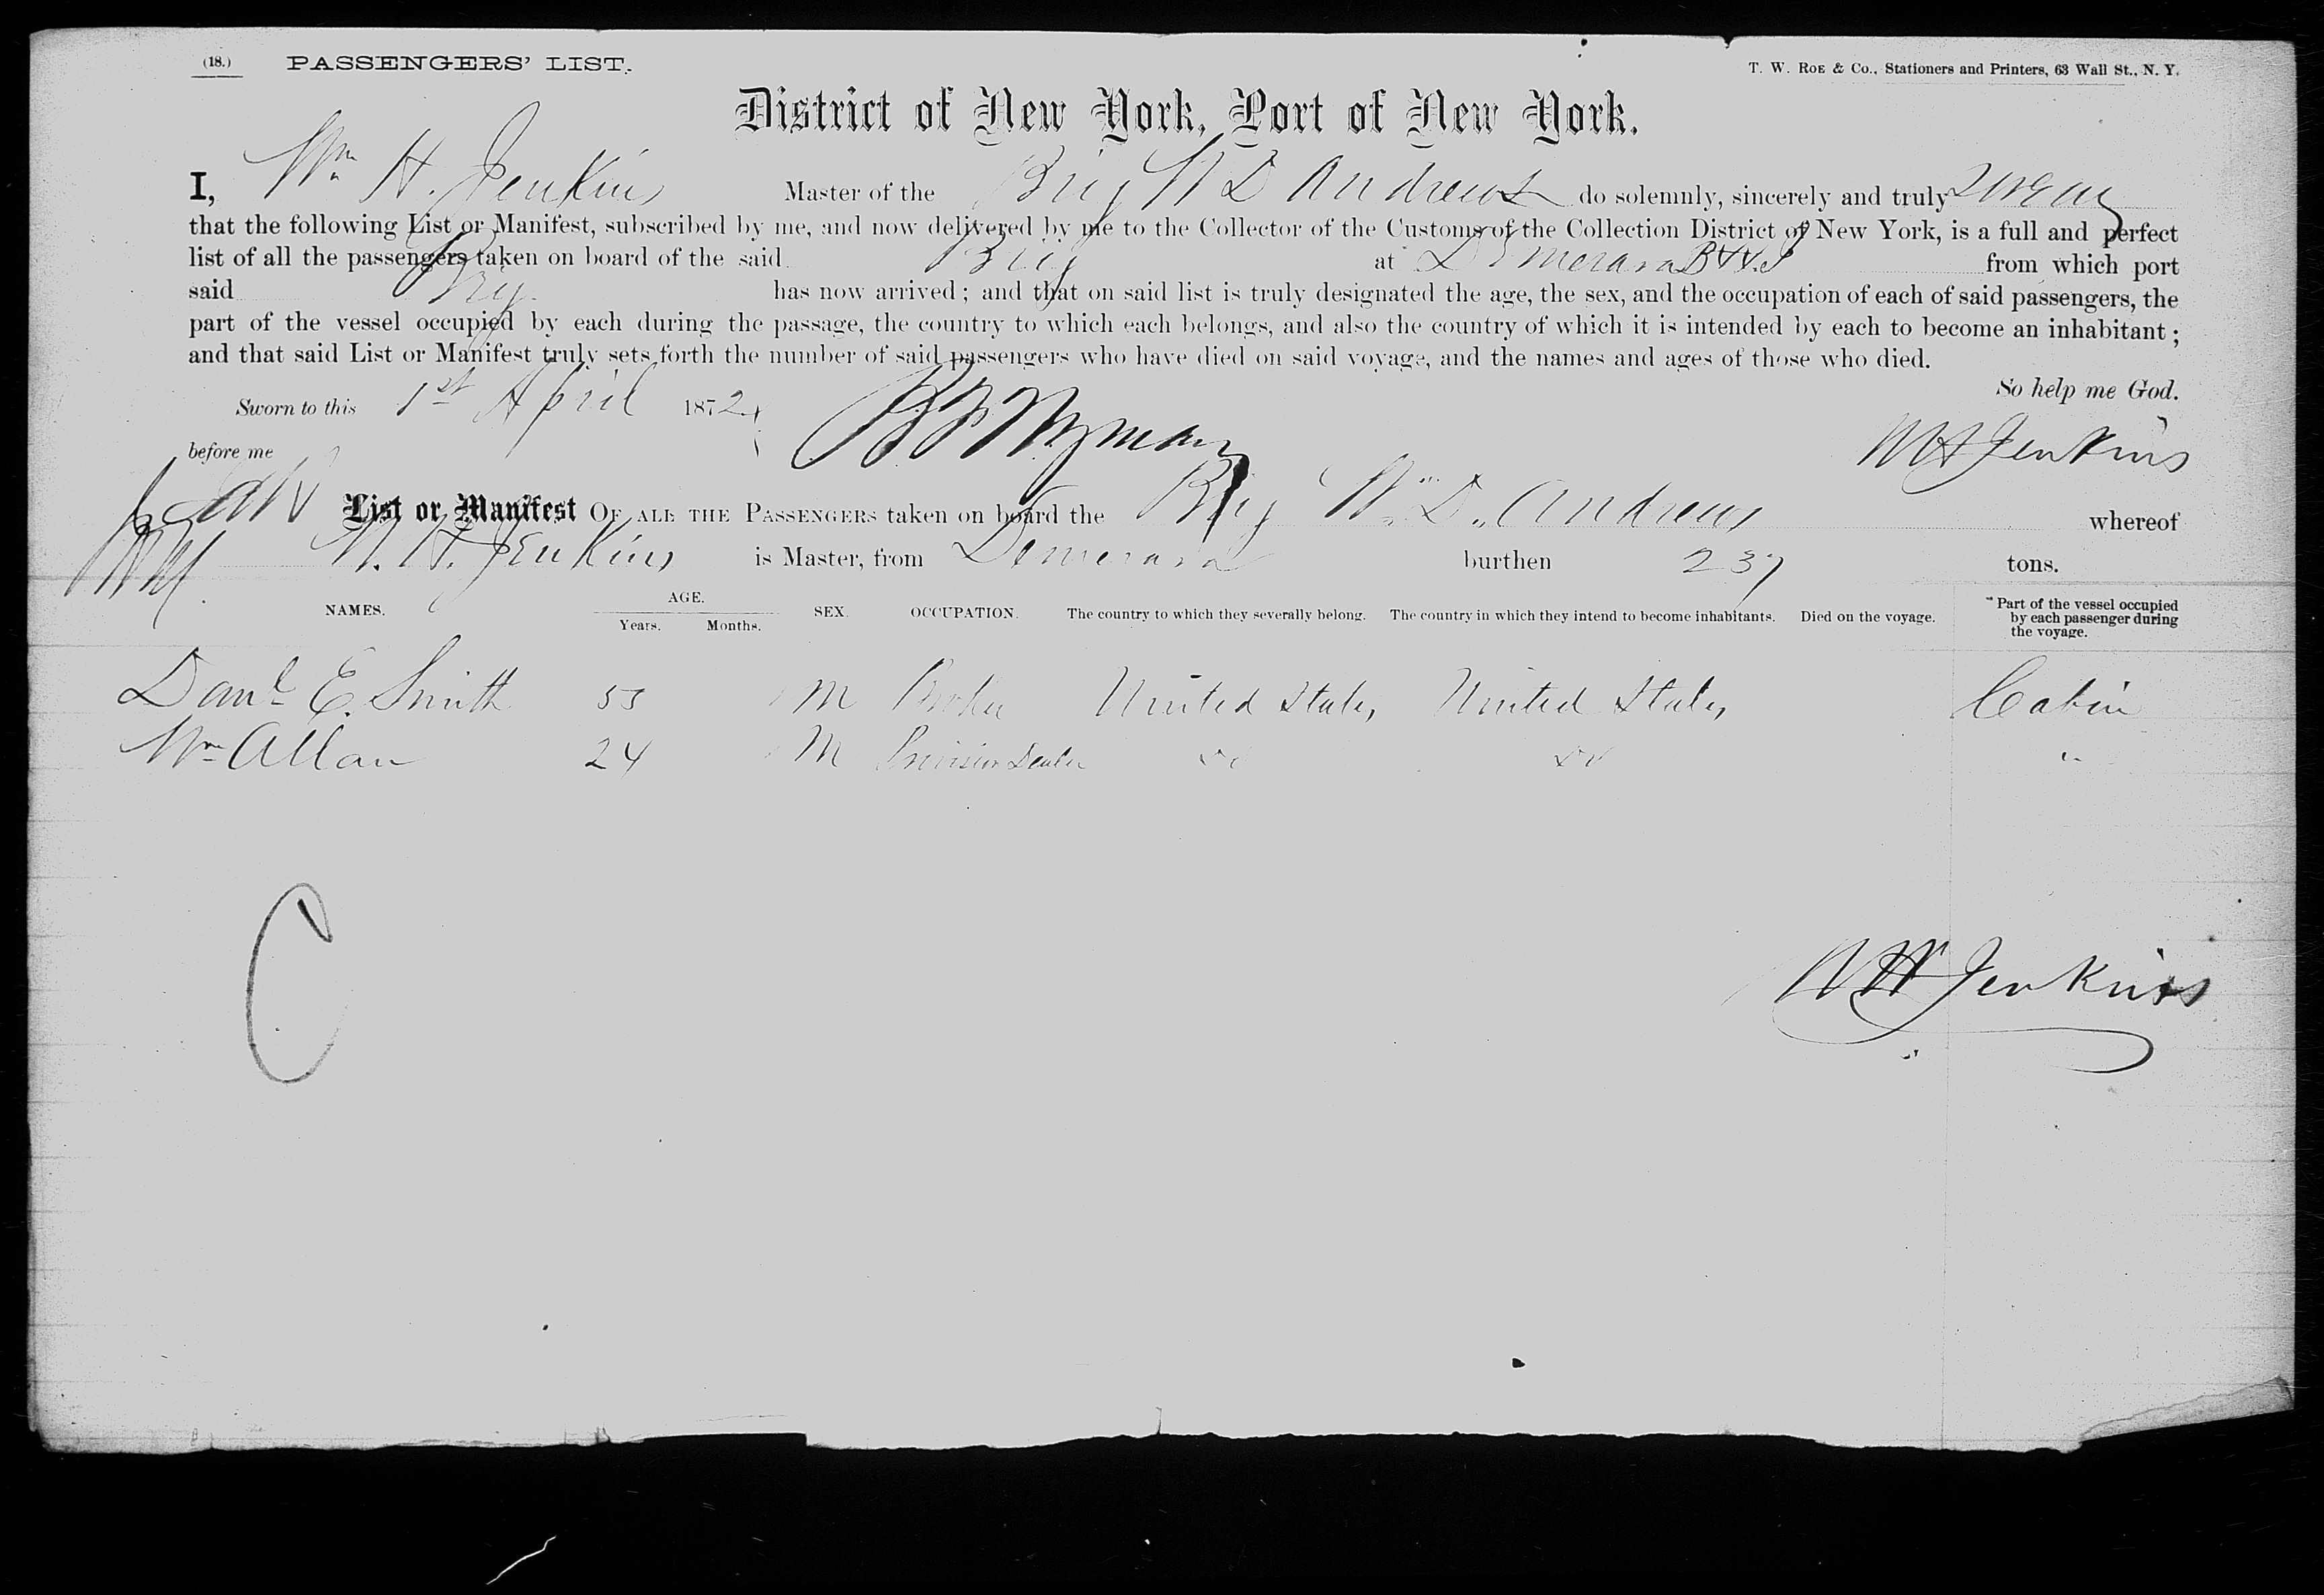 (18.) PASSENGERS' LIST. T. W. ROE & Co., Stationers and Printers, 63 Wall St., N. Y.
District of New York, Port of New York.
I, Wm H. Jenkins Master of the Brig W D Andrews do solemnly, sincerely and truly swear
that the following List or Manifest, subscribed by me, and now delivered by me to the Collector of the Customs of the Collection District of New York, is a full and perfect
list of all the passengers taken on board of the said Brig at Demerara from which port
said Brig has now arrived; and that on said list is truly designated the age, the sex, and the occupation of each of said passengers, the
part of the vessel occupied by each during the passage, the country to which each belongs, and also the country of which it is intended by each to become an inhabitant;
and that said List or Manifest truly sets forth the number of said passengers who have died on said voyage, and the names and ages of those who died.
So help me God.
Sworn to this 1st April 1872
before me W H Jenkins
List or Manifest OF ALL THE PASSENGERS taken on board the Brig Wm D. Andrews whereof
W. H. Jenkins is Master, from Demerara burthen 237 tons.
NAMES. AGE. Years. Months. SEX. OCCUPATION. The country to which they severally belong. The country in which they intend to become inhabitants. Died on the voyage. Part of the vessel occupied by each passenger during the voyage.
Danl E. Smith 53 M Broker United States United States Cabin
Wm Allan 24 M Provision Dealer do do "
C
W H Jenkins